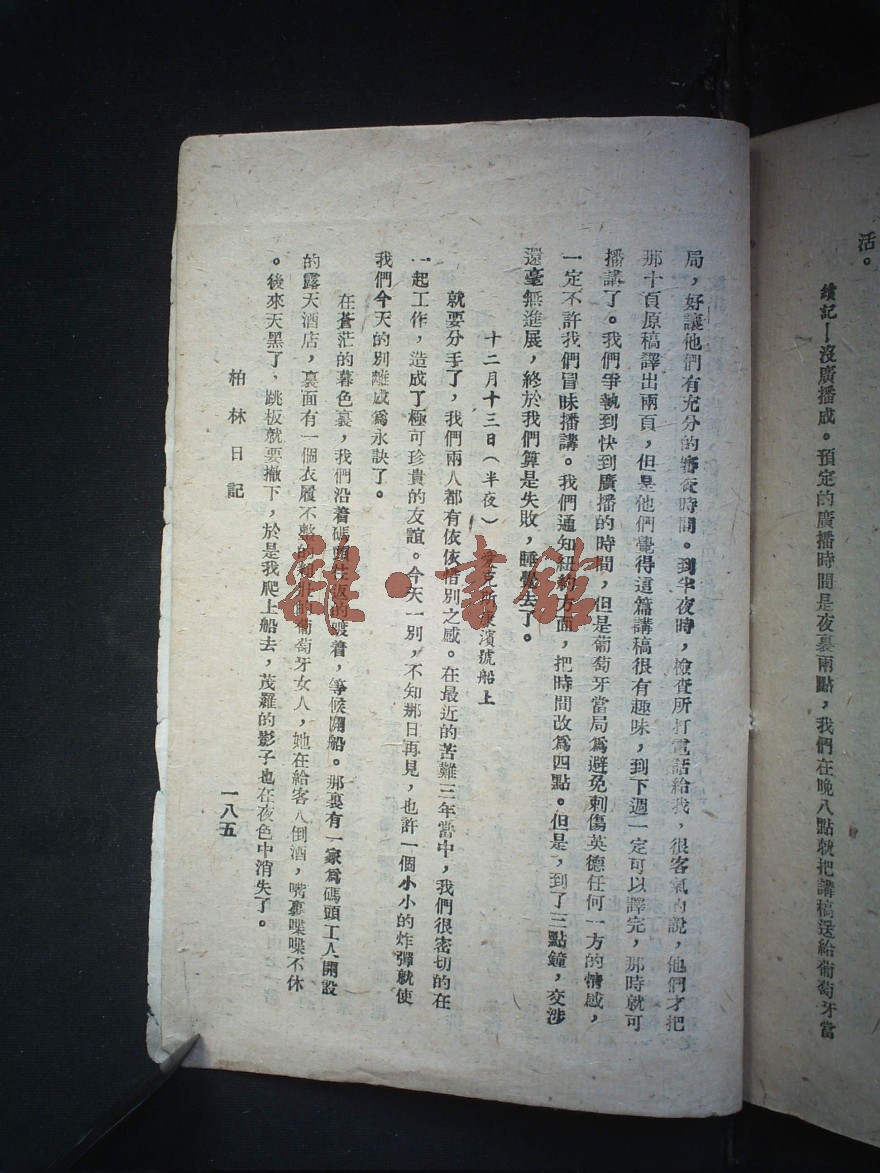 活。
續記—沒廣播成。預定的廣播時間是夜裏兩點，我們在晚八點就把講稿送給葡萄牙當
局，好讓他們有充分的審查時間。到半夜時，檢查所打電話給我，很客氣的說，他們才把
那十頁原稿譯出兩頁，但是他們覺得這篇講稿很有趣味，到下週一定可以譯完，那時就可
播講了。我們爭執到快到廣播的時間，但是葡萄牙當局爲避免刺傷英德任何一方的情感，
一定不許我們冒昧播講。我們通知紐約方面，把時間改爲四點。但是，到了三點鐘，交涉
還毫無進展，終於我們算是失敗，睡覺去了。
十二月十三日（半夜）愛克斯濱號船上
就要分手了，我們兩人都有依依惜別之感。在最近的苦難三年當中，我們很密切的在
一起工作，造成了極可珍貴的友誼。今天一別，不知那日再見，也許一個小小的炸彈就使
我們今天的別離成爲永訣了。
在蒼茫的暮色裏，我們沿着碼頭往返的踱着，等候開船。那裏有一家爲碼頭工人開設
的露天酒店，裏面有一個衣履不整的葡萄牙女人，她在給客人倒酒，嘴裏喋喋不休
。後來天黑了，跳板就要撤下，於是我爬上船去，茂羅的影子也在夜色中消失了。
柏林日記
一八五
雜·書館